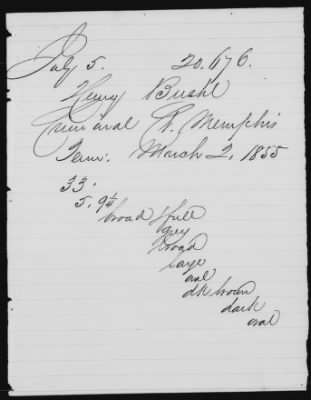 July 5. 20.676.
Henry Bushl
Criminal Ct. Memphis
Tenn. March 2, 1855
33.
5. 9¼
broad & full
grey
broad
large
oval
dk brown
dark
oval